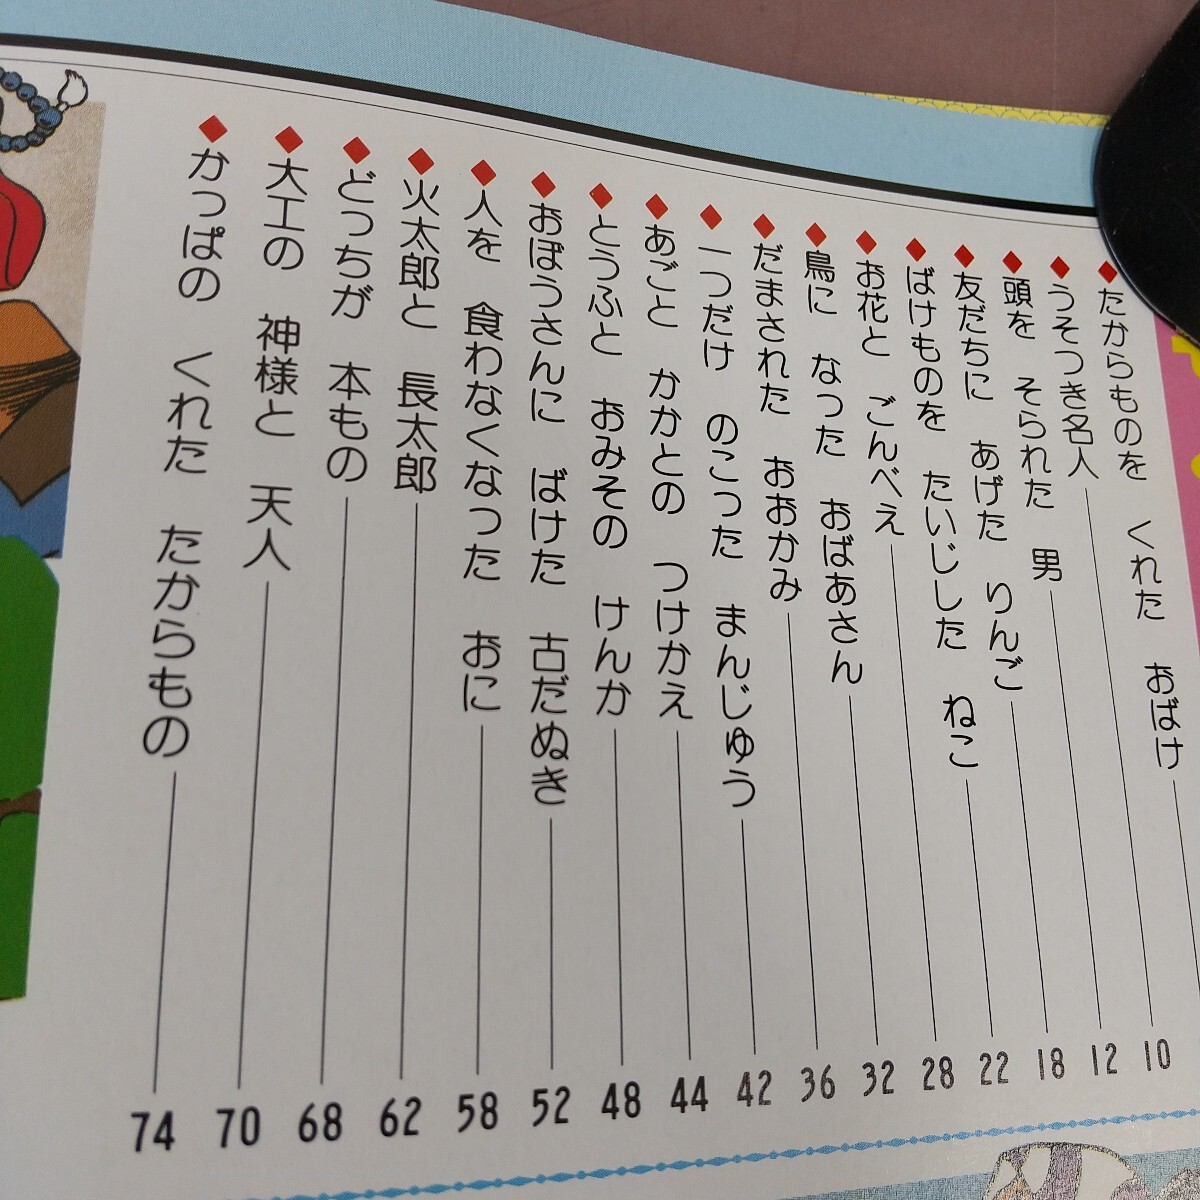 ◆たからものを くれた おばけ 10
◆うそつき名人 12
◆頭を そられた 男 18
◆友だちに あげた りんご 22
◆ばけものを たいじした ねこ 28
◆お花と ごんべえ 32
◆鳥に なった おばあさん 36
◆だまされた おおかみ 42
◆一つだけ のこった まんじゅう 44
◆あごと かかとの つけかえ 48
◆とうふと おみその けんか 52
◆おぼうさんに ばけた 古だぬき 58
◆人を 食わなくなった おに 62
◆火太郎と 長太郎 68
◆どっちが 本もの 70
◆大工の 神様と 天人 74
◆かっぱの くれた たからもの